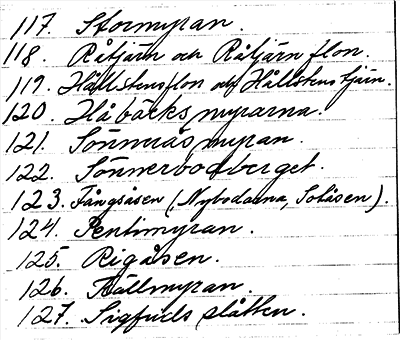 117. Stormyran.
118. Råtjärn och Råtjärnflon.
119. Hällstensflon och Hällstenstjärn.
120. Håbäcksmyrarna.
121. Sönneråsmyran.
122. Sönnerbodberget.
123. Fångåsen (Nybodarna, Solåsen).
124. Pentimyran.
125. Rigåsen.
126. Hällmyran.
127. Sigfridsslåtten.